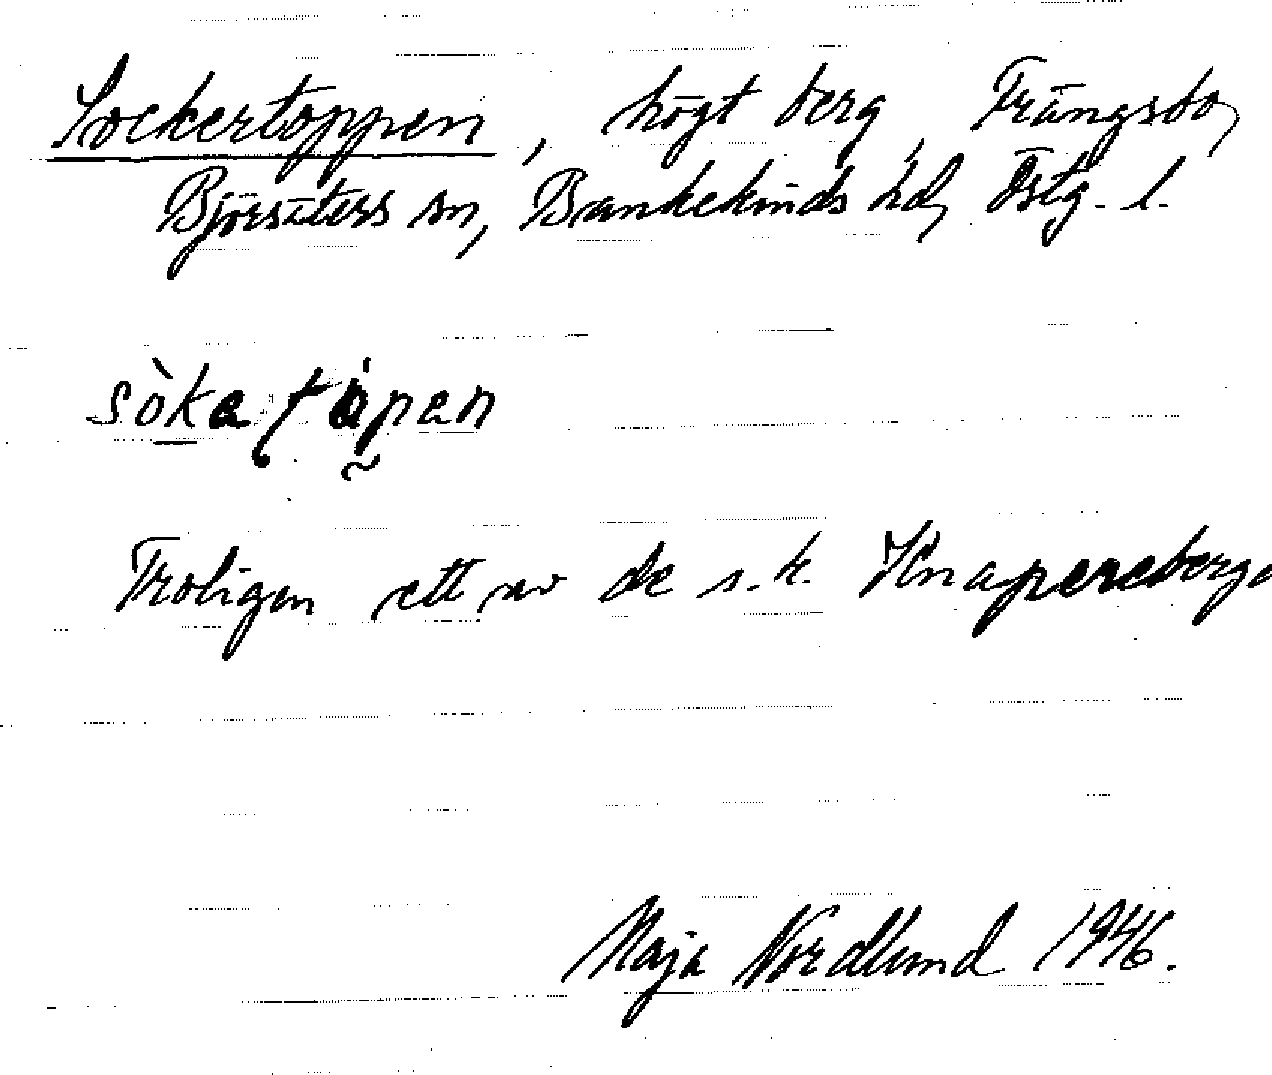 Sockertoppen, högt berg, Trängsbo,
Björsäters sn, Bankekinds hd, Östg. l.
sòkatȧ̰pan
Troligen ett av de s.k. Knapereberge
Maja Nordlund 1946.